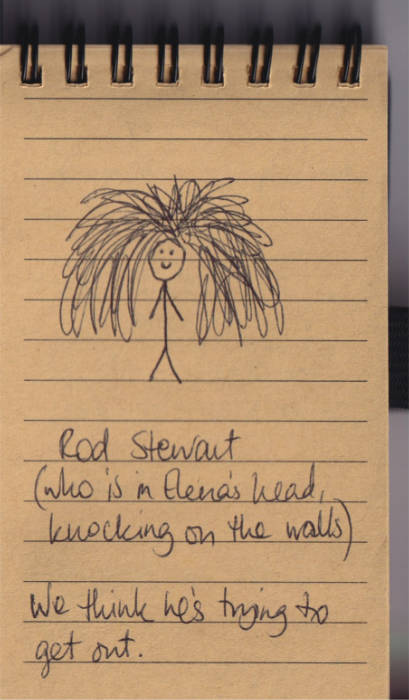 Rod Stewart
(who is in Elena's head,
knocking on the walls)
We think he's trying to
get out.